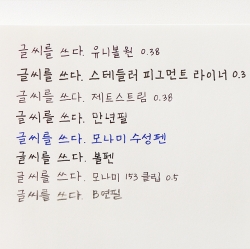 글씨를 쓰다. 유니볼원 0.38
글씨를 쓰다. 스테들러 피그먼트 라이너 0.3
글씨를 쓰다. 제트스트림 0.38
글씨를 쓰다. 만년필
글씨를 쓰다. 모나미 수성펜
글씨를 쓰다. 볼펜
글씨를 쓰다. 모나미 153 클립 0.5
글씨를 쓰다. B연필